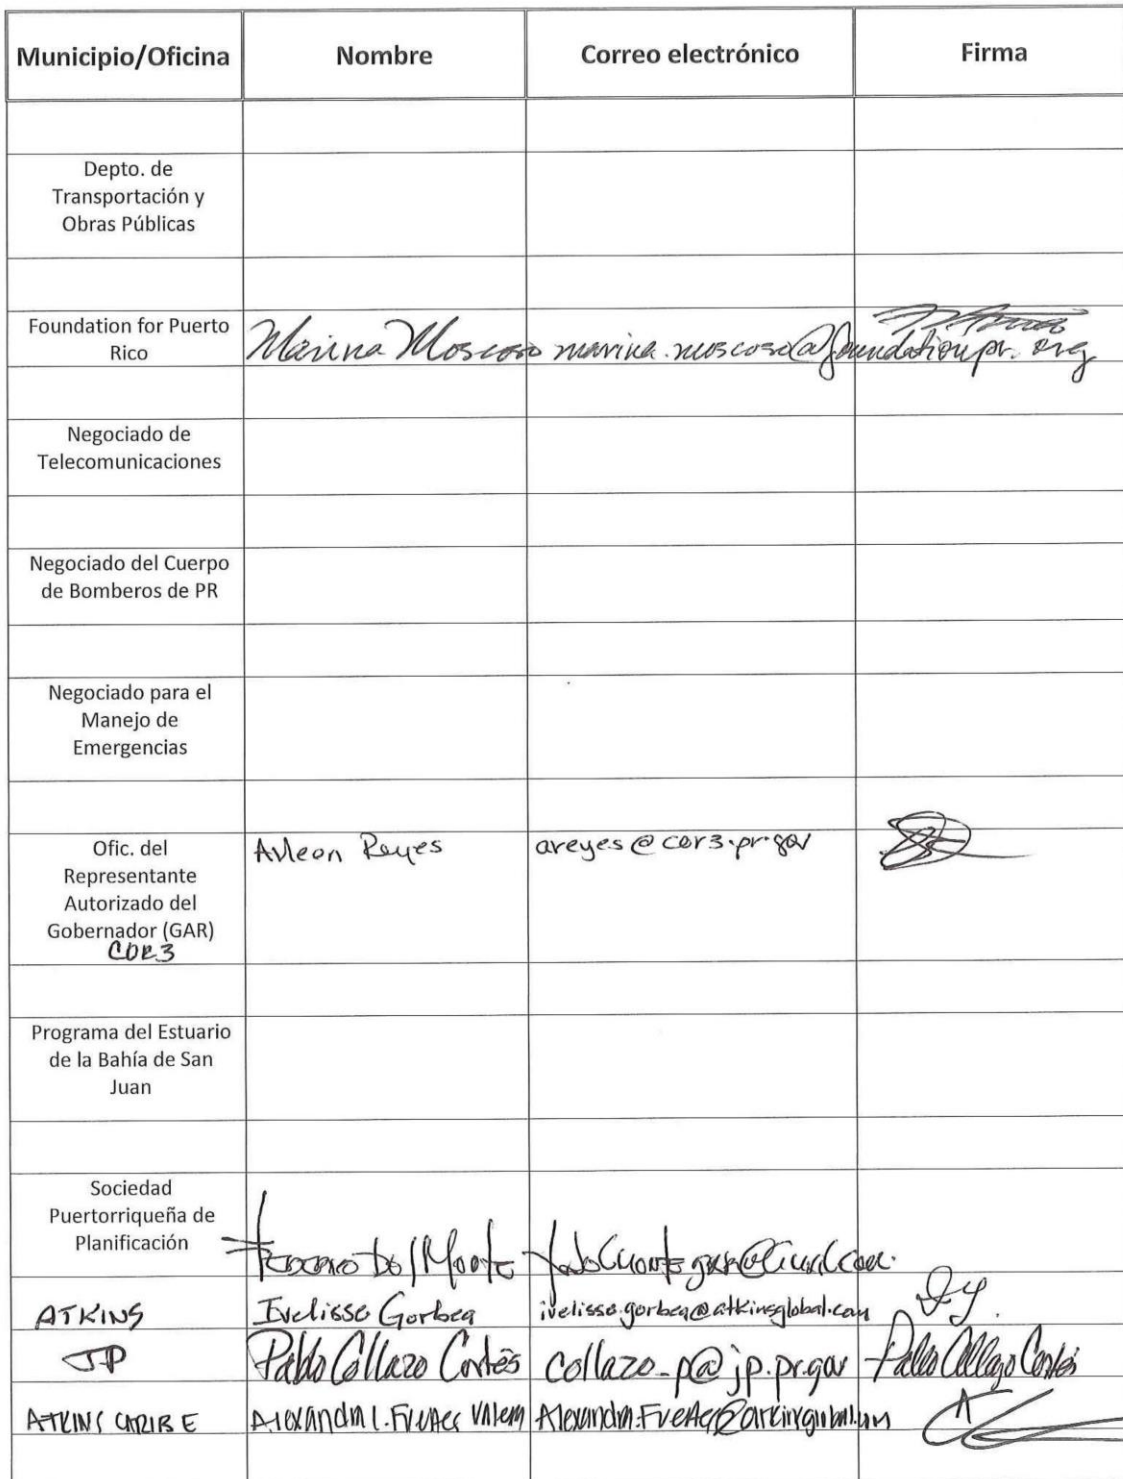 Municipio/Oficina Nombre Correo electrónico Firma
Depto. de
Transportación y
Obras Públicas
Foundation for Puerto
Rico
Marina Moscoso marina.moscoso@foundationpr.org
Negociado de
Telecomunicaciones
Negociado del Cuerpo
de Bomberos de PR
Negociado para el
Manejo de
Emergencias
Ofic. del
Representante
Autorizado del
Gobernador (GAR)
COR3
Arleen Reyes areyes@cor3.pr.gov
Programa del Estuario
de la Bahía de San
Juan
Sociedad
Puertorriqueña de
Planificación
ATKINS Ivelisse Gorbea ivelisse.gorbea@atkinsglobal.com
JP Pablo Collazo Cortés collazo_p@jp.pr.gov Pablo Collazo Cortés
ATKINS CARIBE Alexandra